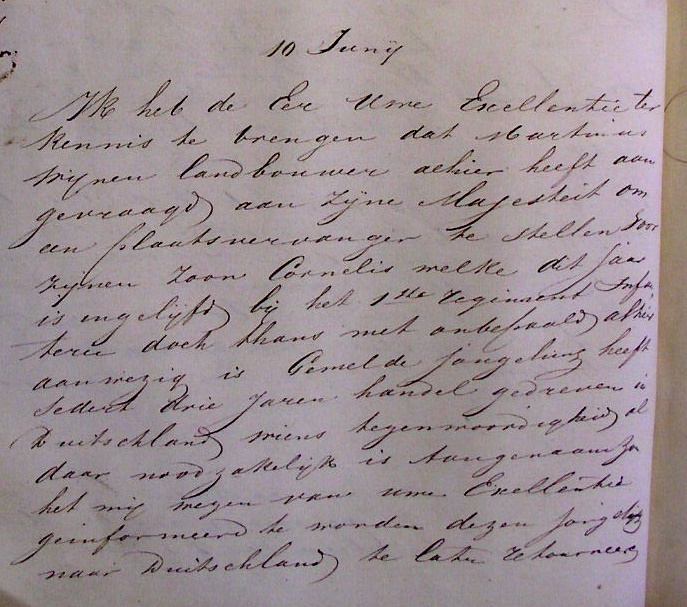 10 Junij
Ik heb de Eer Uwe Excellentie ter
kennis te brengen dat Martinus
Wijnen landbouwer alhier heeft aan
gevraagd aan Zijne Majesteit om
een plaatsvervanger te stellen voor
zijnen Zoon Cornelis welke dit jaar
is ingelijfd bij het 1ste regiment Infan
terie doch thans met onbepaald alhier
aanwezig is Gemelde jongeling heeft
sedert drie Jaren handel gedreven in
Duitschland wiens tegenwoordigheid al
daar noodzakelijk is Aangenaam zou
het mij wezen van uwe Excellentie
geinformeerd te worden dezen jongeling
naar Duitschland te laten retourneren